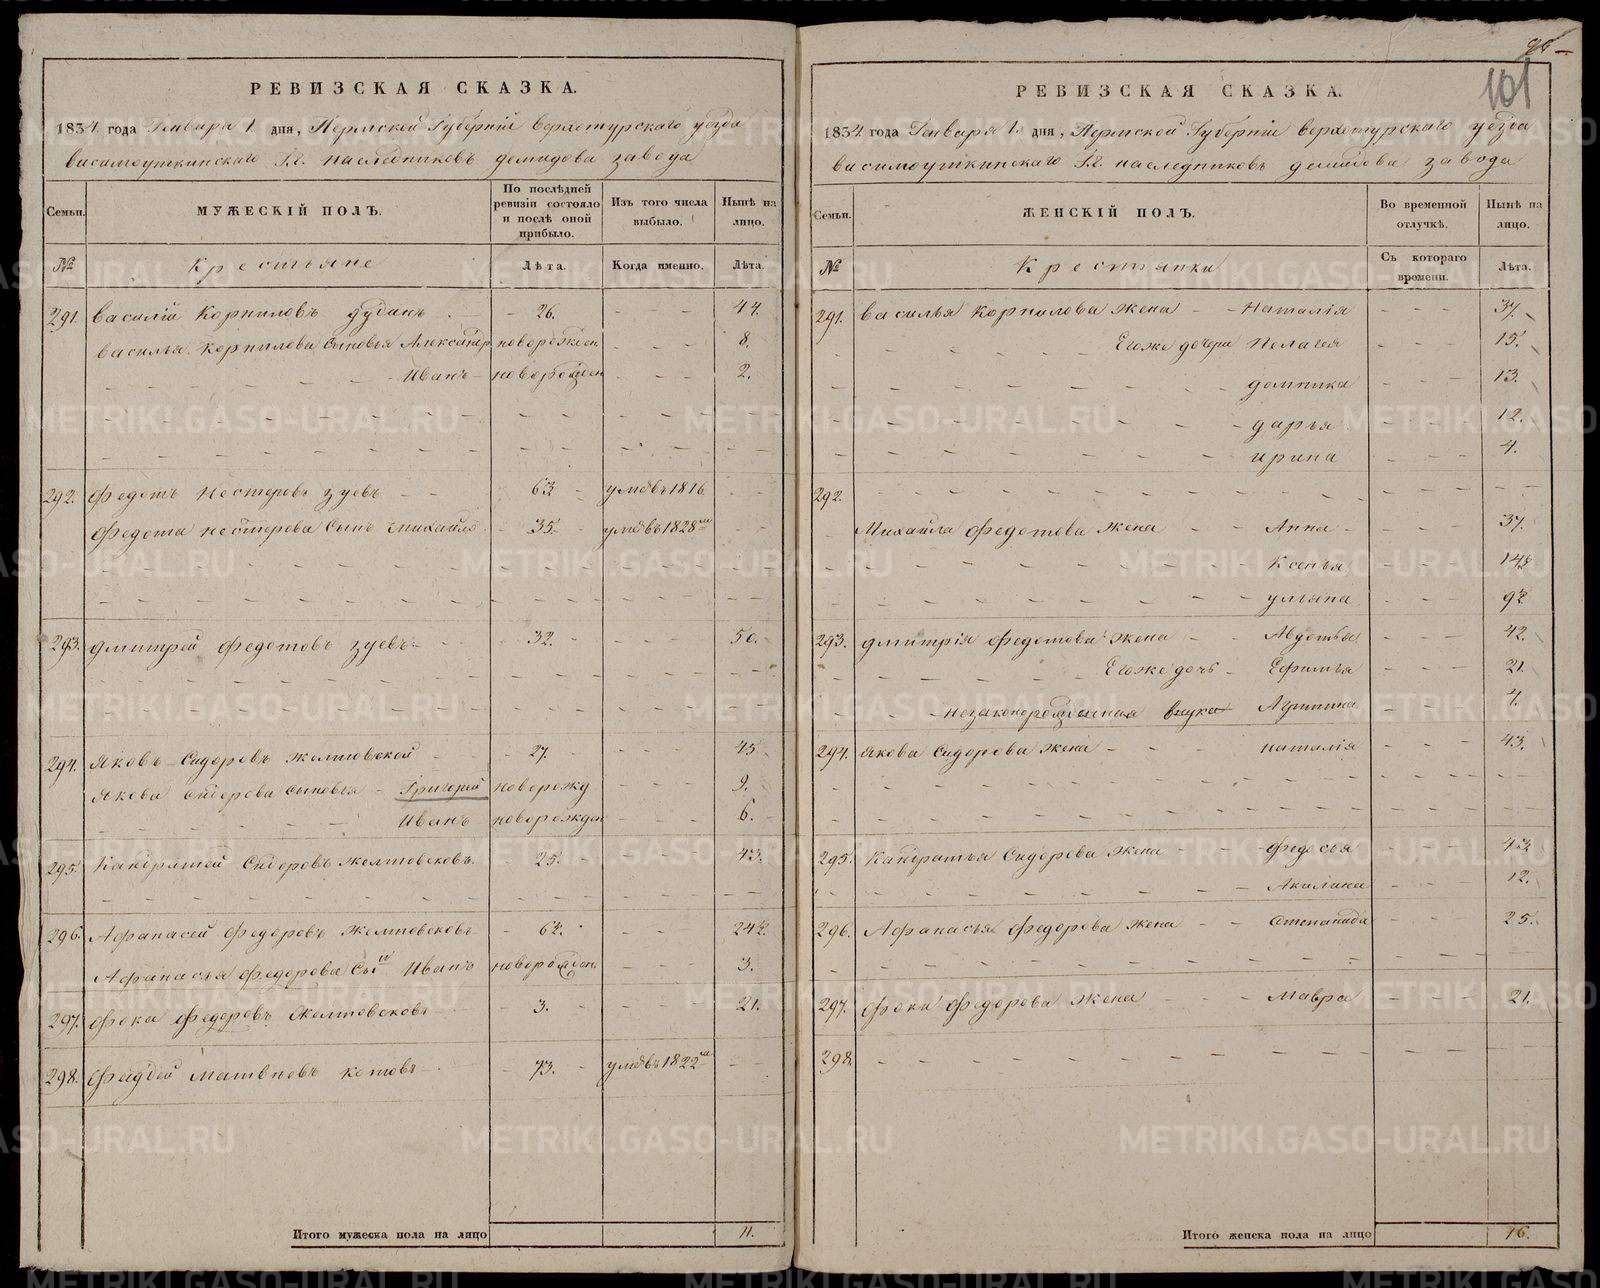 РЕВИЗСКАЯ СКАЗКА.
1834 года Генваря 1. дня, Пермской Губернiи верхотурскаго уезда
висимоуткинскаго Г.Г. наследниковъ демидова завода
Семьи.
МУЖЕСКІЙ ПОЛЪ.
По послѣдней ревизіи состояло и послѣ оной прибыло.
Изъ того числа выбыло.
Нынѣ на лицо.
№
Крестьяне
Лѣта.
Когда именно.
Лѣта.
291. василiй Корниловъ дудинъ 26. 44.
василья Корнилова сыновья Александръ новорожден 8.
Иванъ новорожден 2.
292. Федотъ Несторовъ зуевъ 63 умеръ 1816
Федота несторова сынъ михайло 35. умевъ 1828
293. дмитрей Федотовъ зуевъ 32. 50.
294. Яковъ Сидоровъ желтовской 27. 45
Якова Сидорова сыновья Григорей новорожд 9.
Иванъ новорожден 6.
295. Кандратей Сидоровъ желтовсковъ 25. 43.
296. Афанасей Федоровъ желтовсковъ 6½. 24½.
Афанасья Федорова сынъ Иванъ новорожден. 3.
297. Фока Федоровъ желтовсковъ 3. 21.
298. Фадей Матвѣевъ котовъ 73. умевъ 1822
Итого мужеска пола на лицо 11.
96
101
РЕВИЗСКАЯ СКАЗКА.
1834 года Генваря 1. дня, Пермской Губернiи верхотурскаго уезда
висимоуткинскаго Г.Г. наследниковъ демидова завода
Семьи.
ЖЕНСКІЙ ПОЛЪ.
Во временной отлучкѣ.
Нынѣ на лицо.
№
Крестьянки
Съ котораго времени.
Лѣта.
291. василья Корнилова жена Наталiя 37.
Егоже дочери Пелагея 15.
домника 13.
дарья 12.
ирина 4.
292.
Михайла Федотова жена Анна 37.
Ксенья 14½
ульяна 9½
293. дмитрiя Федотова жена Авдотья 42.
Егоже дочь Ефимья 21.
незаконорожденная внука Агрипина 4.
294. Якова Сидорова жена наталiя 43.
295. Кандратья Сидорова жена Федосья 43
Акилина 12.
296. Афанасья Федорова жена Степанида 25.
297. Фоки Федорова жена Мавра 21.
298.
Итого женска пола на лицо 16.
METRIKI.GASO-URAL.RU